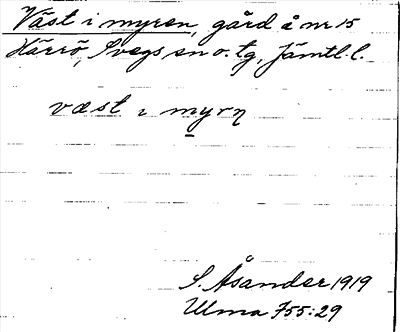 Väst i myren, gård å nr 15
Härrö, Svegs sn o. tg, Jämtl. l.
væst ı myrη
S. Åsander 1919
Ulma 755:29